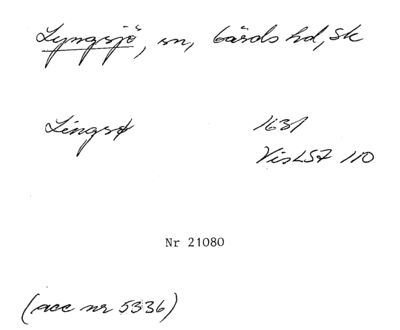 Lyngsjö, sn, Gärds hd, Sk
Lingsø 1631
VisLSZ 110
Nr 21080
(acc nr 5336)